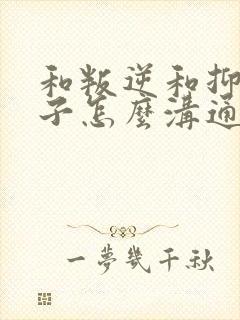 和叛逆和抑
子怎麼溝通
一夢幾千秋